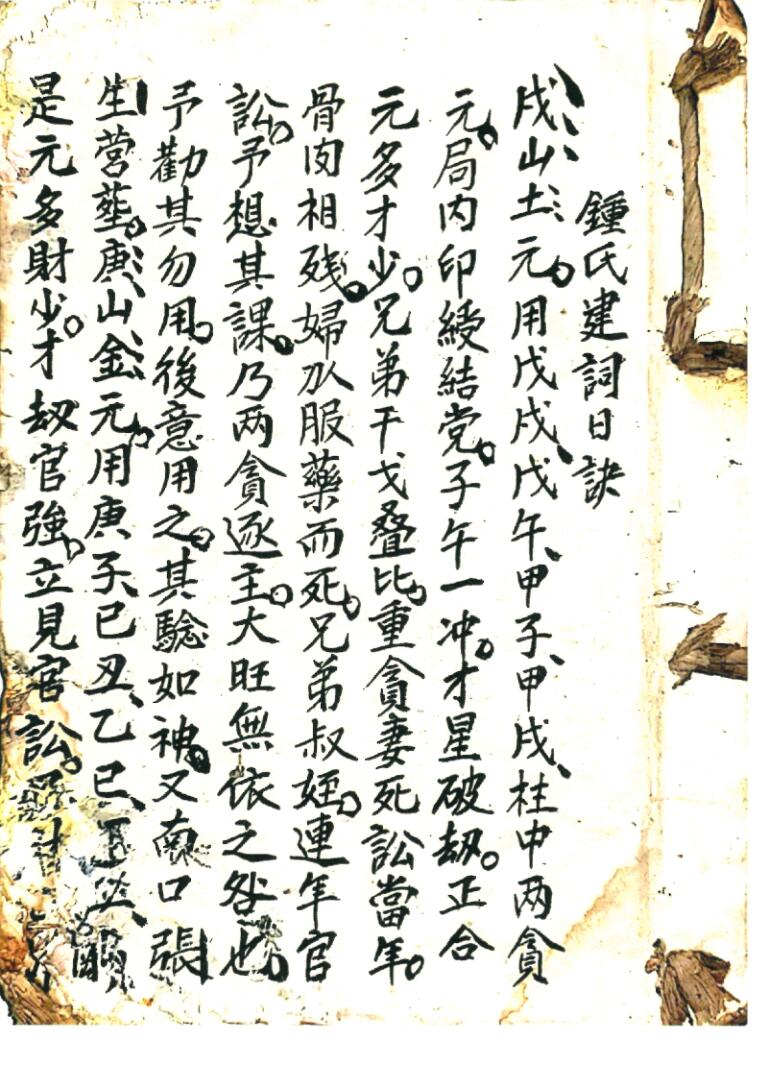 鍾氏建詞日訣
戌山土元。用戊戌、戊午、甲子、甲戌、柱中两貪
元。局内印綬結党。子午一冲。才星破刼。正合
元多才少。兄弟干戈叠比。重貪妻死訟當年。
骨肉相殘。婦以服藥而死。兄弟叔姪。連年官
訟。予想其課。乃两貪逐主。大旺無依之咎也。
予勸其勿用。後意用之。其驗如神。又南口張
生营塟。庚山金元。用庚子、己丑、乙巳、
是元多財少。才刼官強。立見官訟。